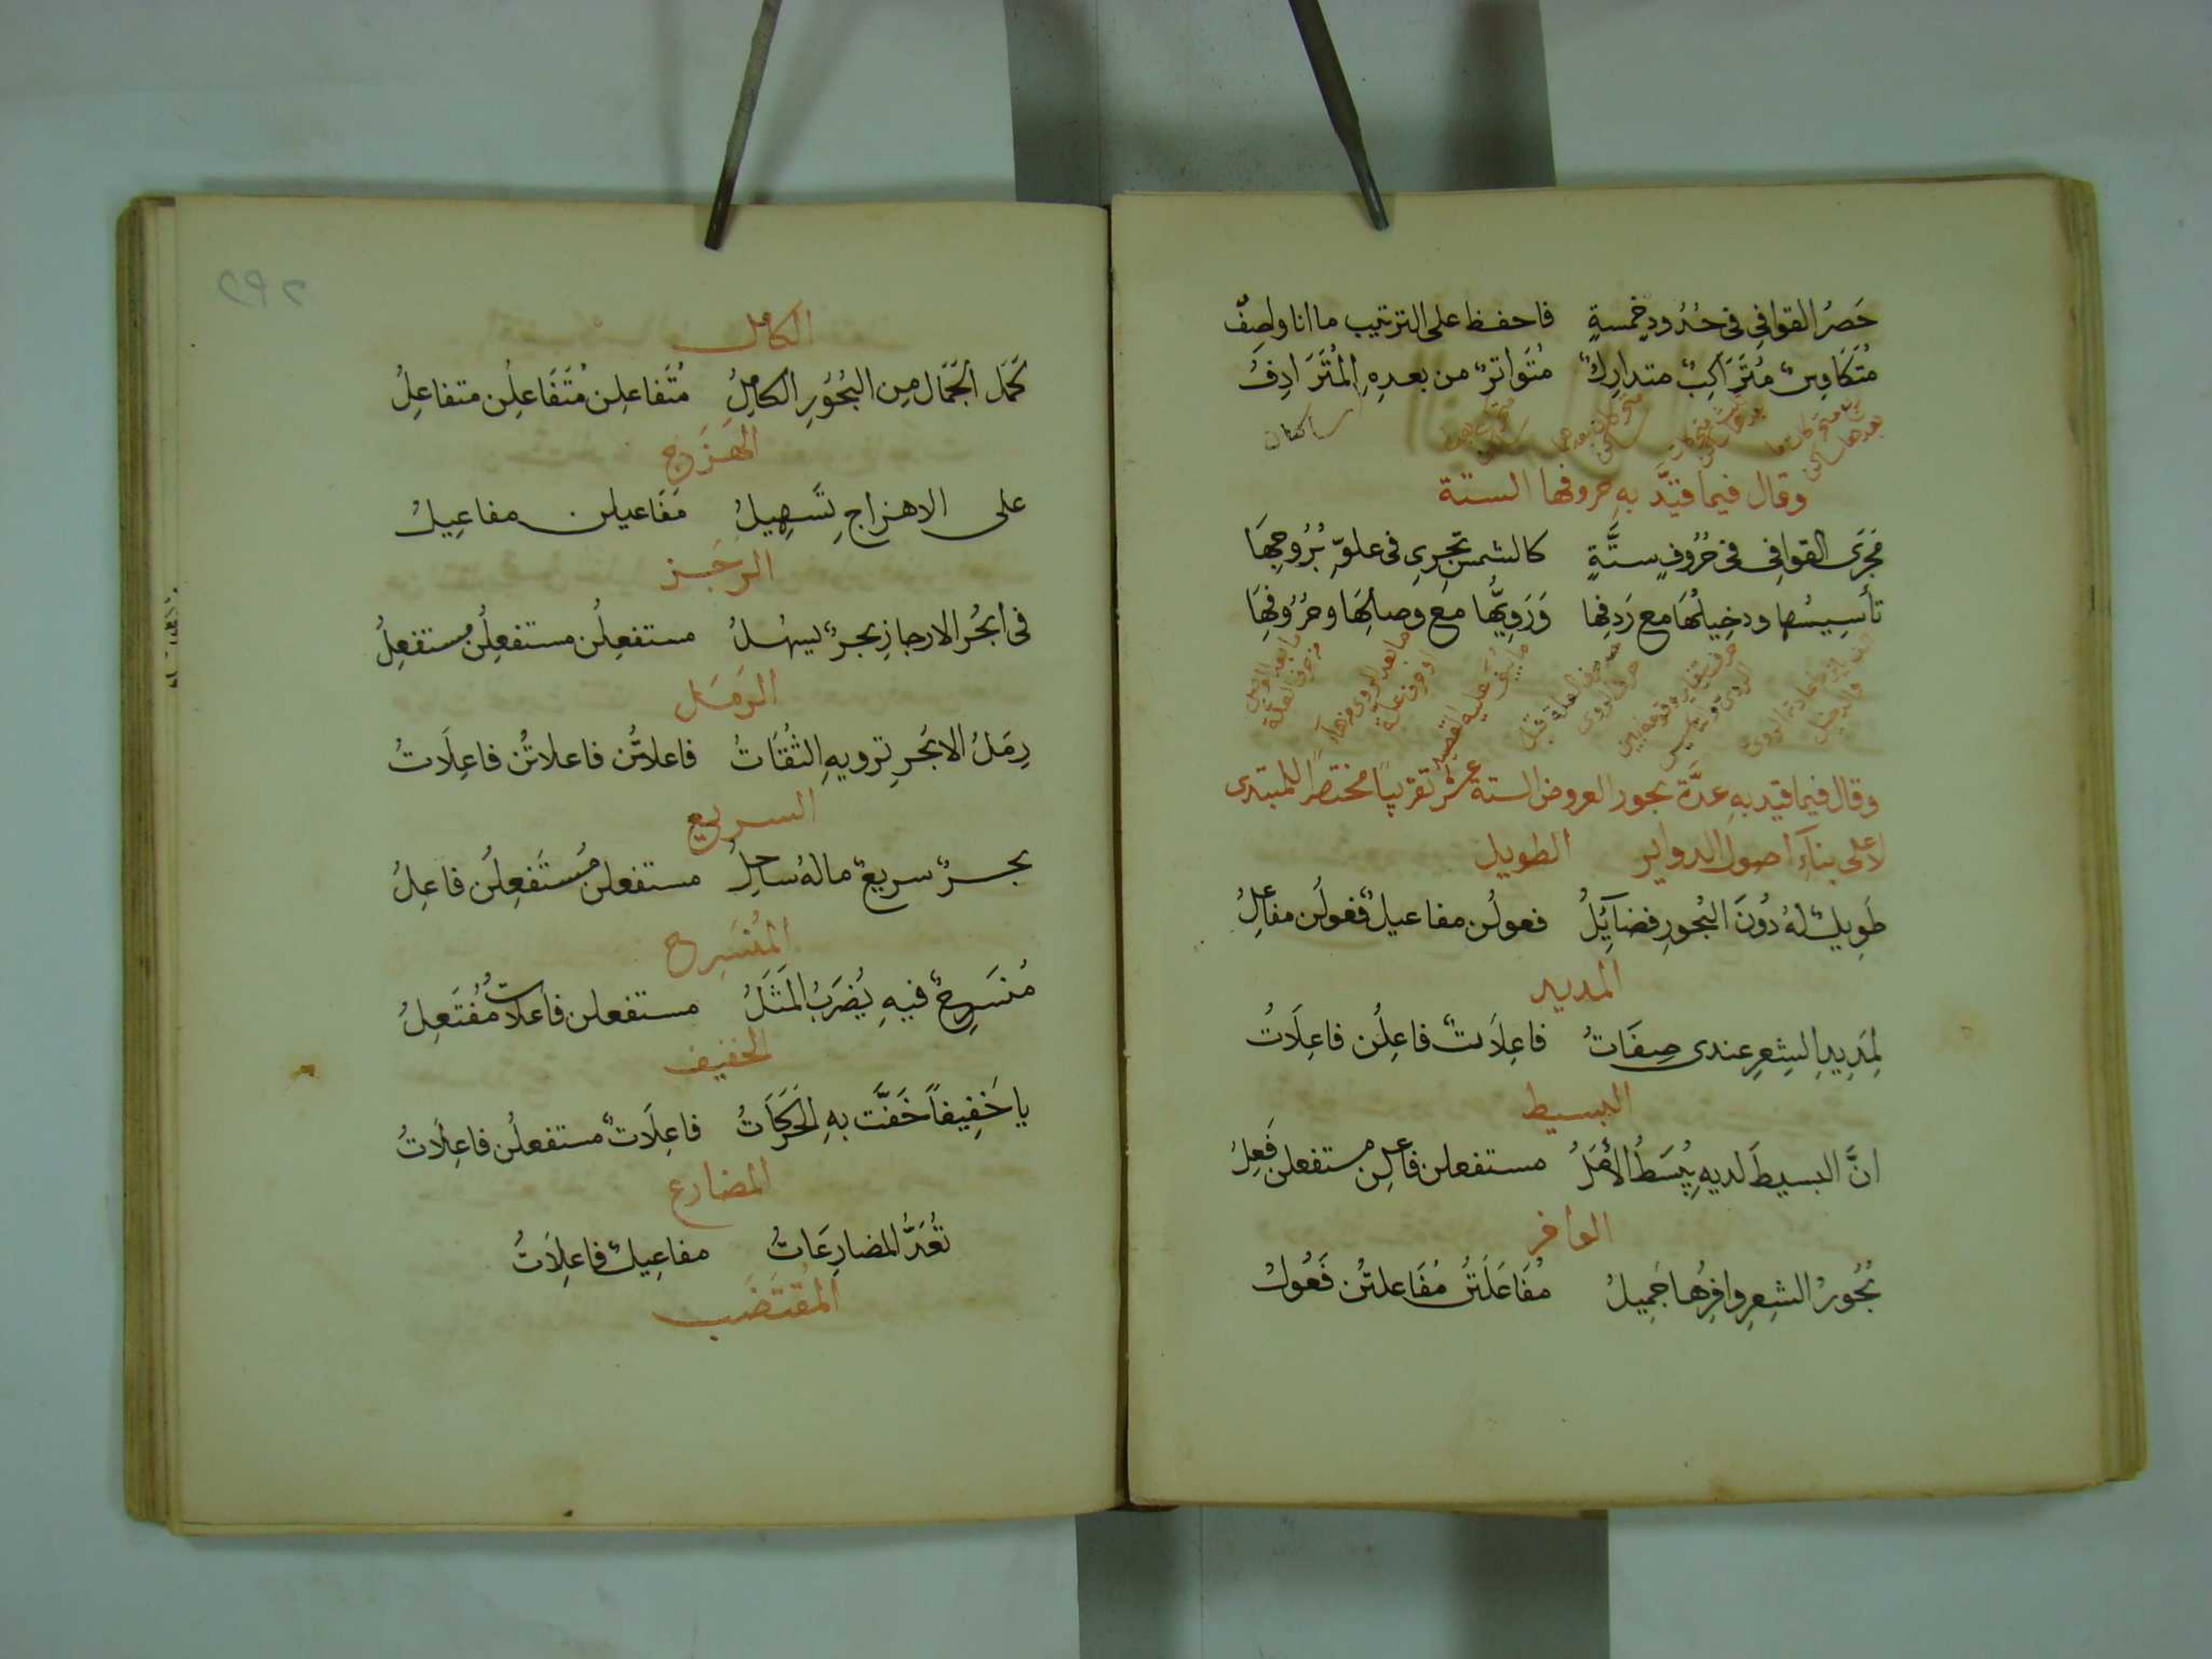 حَصرُ القوافِي فى حُدُودٍ خمسةٍ فاحفظ على الترتيب ما انا واصِفُ
مُتَكَاوِسٌ مُتَرَاكِبٌ متدارِكٌ مُتَواترٌ من بعدِهِ المُتَرَادِفُ
ساكنان
وقال فيما قيَّد بهِ حروفها الستة
مَجرَى القوافِى فى حُرُوفٍ ستَّةٍ كالشمس تجرِى فى علوِّ بُرُوجِهَا
تأسِيسُها ودخِيلُهَا مع رَدفِها وَرَوِيُّها مع وصلِهَا وخرُوجِهَا
وقال فيما قيد بهِ عدَّة بحور العروض الستة عشر تقريبًا مختصرًا للمبتدى
لا على بناءِ اصول الدواير الطويل
طَوِيلٌ لهُ دُونَ البُحورِ فضايِلُ فعولُن مفاعيلٌ فعولُن مفاعِلُ
المديد
لِمَدِيدِ الشِعرِ عندى صِفَاتُ فاعِلاَتٌ فاعِلُن فاعِلَاتُ
البسيط
انَّ البسيطَ لديهِ يُبسَطُ الأَمَلُ مستفعلن فاعلن مستفعلن فَعِلُ
الوافر
بُحُورُ الشِعرِ وافِرُها جَمِيلُ مُفَاعَلَتُن مُفَاعلتُن فَعُولُ
الكامل
كَمَل الجَمَال مِن البُحُورِ الكامِلُ مُتَفاعلِن مُتَفَاعلِن متفاعِلُ
الهَزَج
على الاهزاجِ تَسهِيلُ مَفَاعيلن مفاعِيلُ
الرجَز
فى ابحُر الارجازِ بحرٌ يسهُلُ مستفعِلُن مستفعِلُن مستفعِلُ
الرَمَل
رمَلُ الابحُرِ ترويهِ الثقَاتُ فاعلاتُن فاعلاتُن فاعِلَاتُ
السريع
بحرٌ سريعٌ مالهُ ساحِلُ مستفعلن مُستَفعِلُن فاعِلُ
المُنسَرِح
مُنسَرِحٌ فيهِ يُضرَبُ المَثَلُ مستفعلن فاعلاتٌ مُفتَعِلُ
الخفيف
يا خَفِيفاً خَفَّت بهِ الحَرَكَاتُ فاعِلَاتٌ مستفعلُن فاعِلَاتُ
المضارع
تُعَدُّ المضارِعَاتُ مفاعِيلٌ فاعِلَاتُ
المُقتَضَب